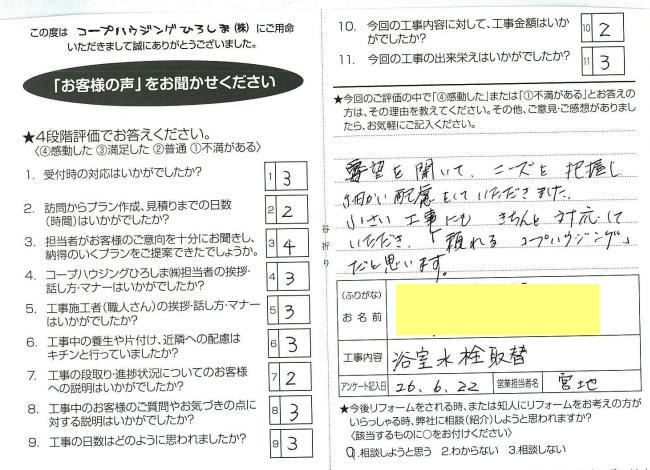 この度は コープハウジングひろしま(株) にご用命
いただきまして誠にありがとうございました。
「お客様の声」をお聞かせください
★4段階評価でお答えください。
〈④感動した ③満足した ②普通 ①不満がある〉
1. 受付時の対応はいかがでしたか? 1 3
2. 訪問からプラン作成、見積りまでの日数
(時間)はいかがでしたか? 2 2
3. 担当者がお客様のご意向を十分にお聞きし、
納得のいくプランをご提案できたでしょうか。 3 4
4. コープハウジングひろしま㈱担当者の挨拶・
話し方・マナーはいかがでしたか? 4 3
5. 工事施工者(職人さん)の挨拶・話し方・マナー
はいかがでしたか? 5 3
6. 工事中の養生や片付け、近隣への配慮は
キチンと行っていましたか? 6 3
7. 工事の段取り・進捗状況についてのお客様
への説明はいかがでしたか? 7 2
8. 工事中のお客様のご質問やお気づきの点に
対する説明はいかがでしたか? 8 3
9. 工事の日数はどのように思われましたか? 9 3
谷折り
10. 今回の工事内容に対して、工事金額はいか
がでしたか? 10 2
11. 今回の工事の出来栄えはいかがでしたか? 11 3
★今回のご評価の中で「④感動した」または「①不満がある」とお答えの
方は、その理由を教えてください。その他、ご意見・ご感想がありまし
たら、お気軽にご記入ください。
要望を聞いて、ニーズを把握し
細かい配慮をしていただきました。
小さい工事にもきちんと対応して
いただき、「頼れるコープハウジング」
だと思います。
(ふりがな)
お名前
工事内容 浴室水栓取替
アンケート記入日 26.6.22 営業担当者名 宮地
★今後リフォームをされる時、または知人にリフォームをお考えの方が
いらっしゃる時、弊社に相談(紹介)しようと思われますか?
〈該当するものに○をお付けください〉
1.相談しようと思う 2.わからない 3.相談しない